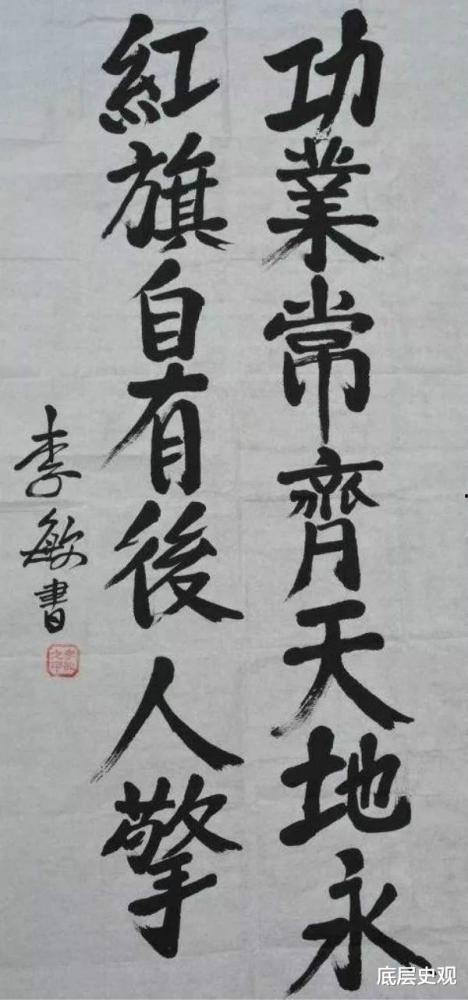 功業常齊天地永
紅旗自有後人擎
李敏書
底层史观